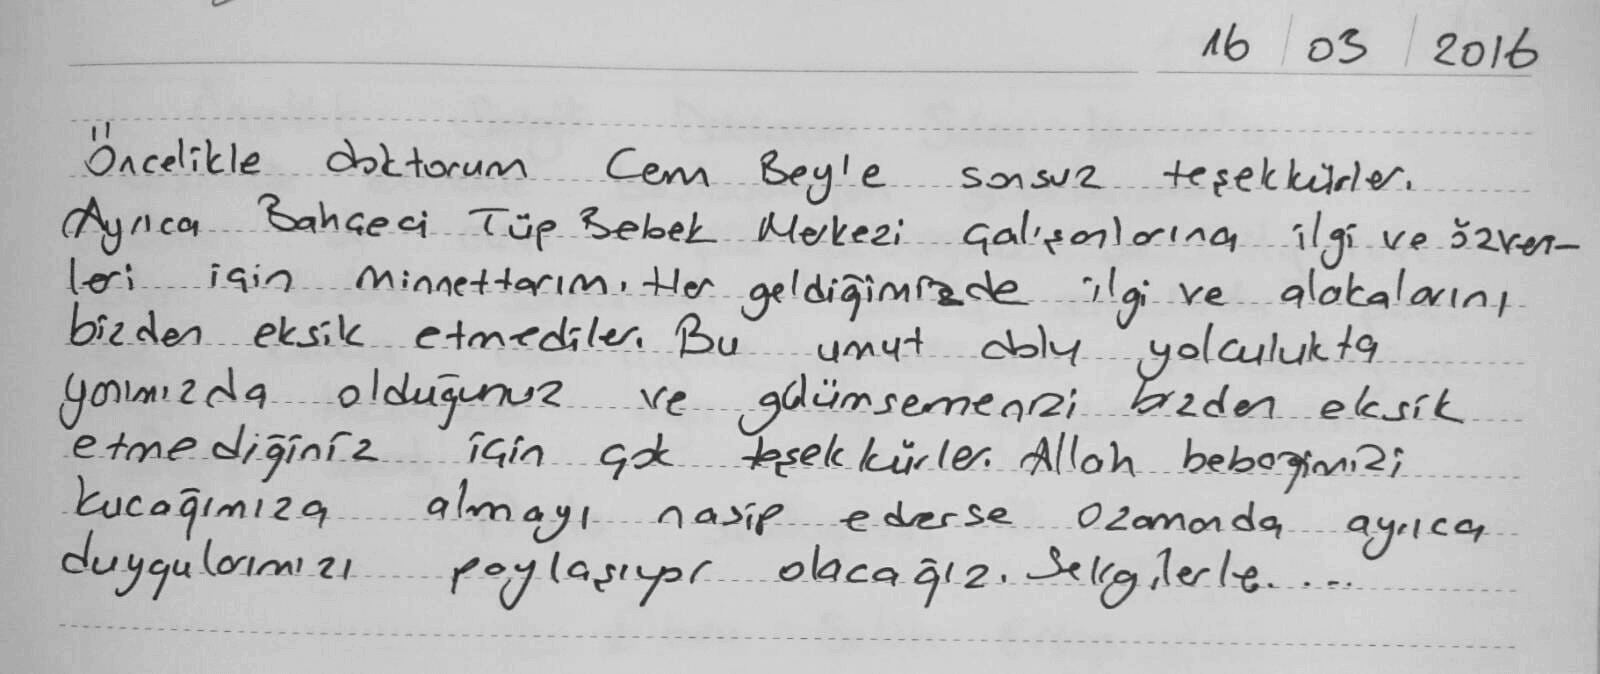 16 / 03 / 2016
Öncelikle doktorum Cem Bey'e sonsuz teşekkürler.
Ayrıca Bahçeci Tüp Bebek Merkezi çalışanlarına ilgi ve özveri-
leri için minnettarım. Her geldiğimizde ilgi ve alakalarını
bizden eksik etmediler. Bu umut dolu yolculukta
yanımızda olduğunuz ve gülümsemenizi bizden eksik
etmediğiniz için çok teşekkürler. Allah bebeğimizi
kucağımıza almayı nasip ederse ozamanda ayrıca
duygularımızı paylaşıyor olacağız. Sevgilerle....